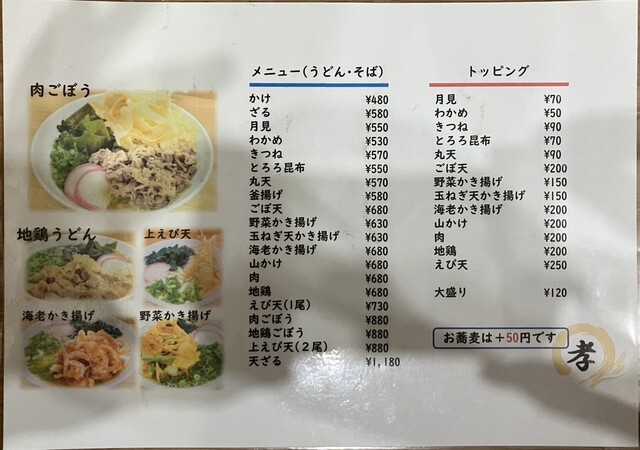 肉ごぼう
地鶏うどん
上えび天
海老かき揚げ
野菜かき揚げ
メニュー(うどん・そば)
かけ ¥480
ざる ¥580
月見 ¥550
わかめ ¥530
きつね ¥570
とろろ昆布 ¥550
丸天 ¥570
釜揚げ ¥580
ごぼ天 ¥680
野菜かき揚げ ¥630
玉ねぎ天かき揚げ ¥630
海老かき揚げ ¥680
山かけ ¥680
肉 ¥680
地鶏 ¥680
えび天(1尾) ¥730
肉ごぼう ¥880
地鶏ごぼう ¥880
上えび天(2尾) ¥880
天ざる ¥1,180
トッピング
月見 ¥70
わかめ ¥50
きつね ¥90
とろろ昆布 ¥70
丸天 ¥90
ごぼ天 ¥200
野菜かき揚げ ¥150
玉ねぎ天かき揚げ ¥150
海老かき揚げ ¥200
山かけ ¥200
肉 ¥200
地鶏 ¥200
えび天 ¥250
大盛り ¥120
お蕎麦は+50円です
孝